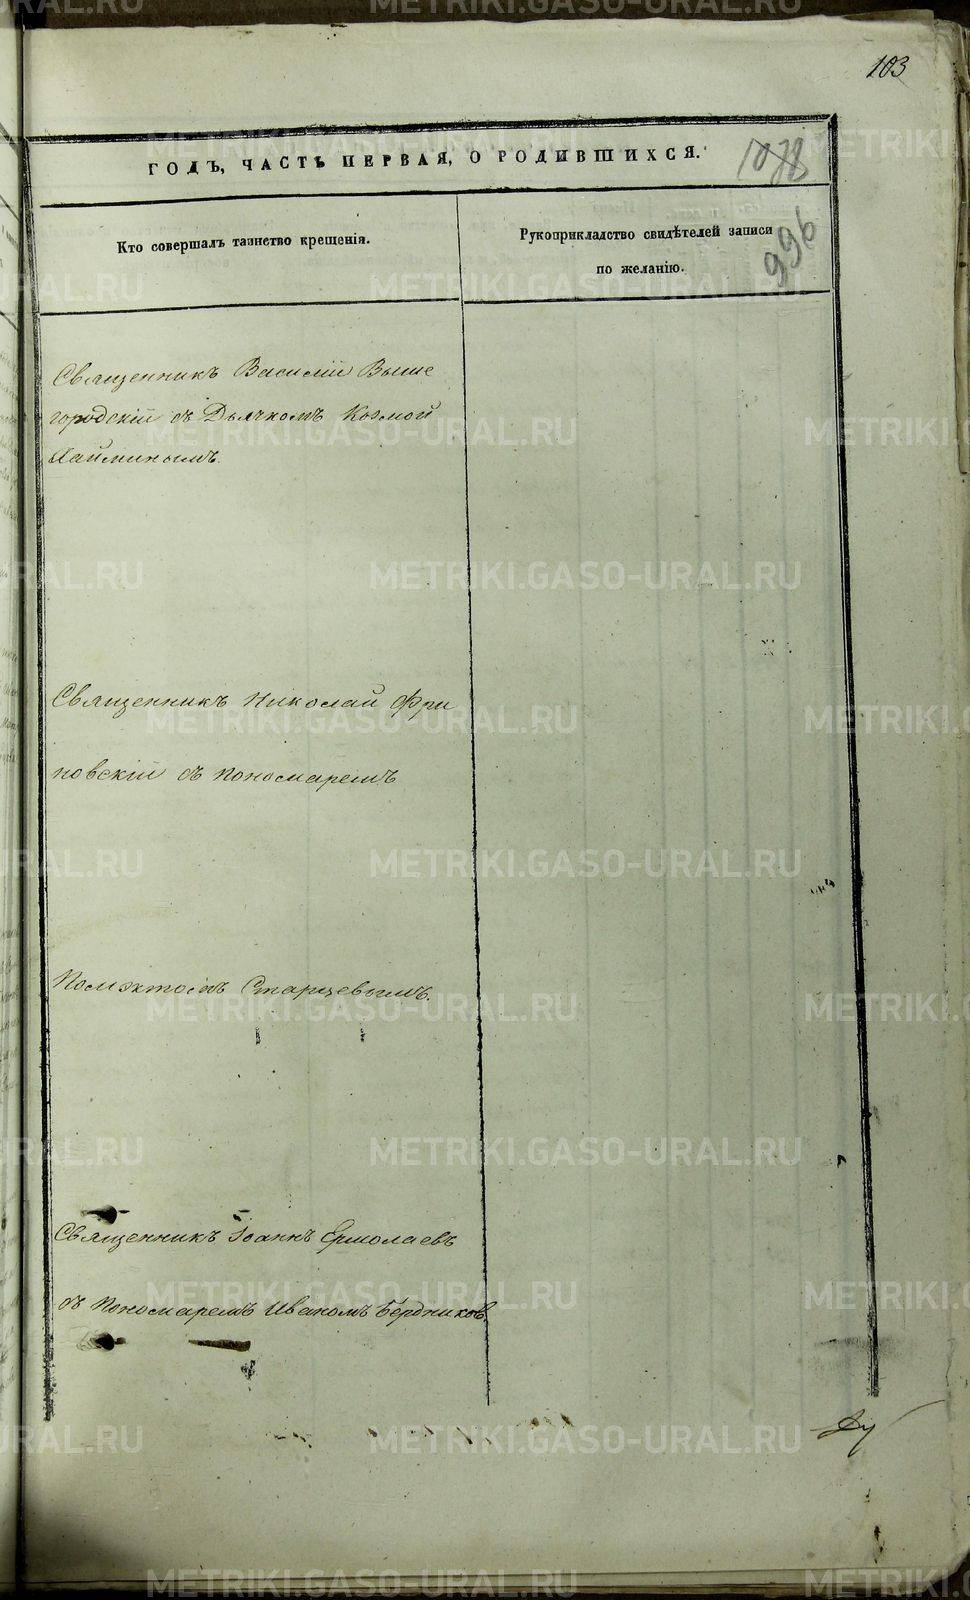 103
ГОДЪ, ЧАСТЬ ПЕРВАЯ, О РОДИВШИХСЯ.
1078
996
Кто совершалъ таинство крещенія.
Рукоприкладство свидѣтелей записи
по желанію.
Священникъ Василій Выше
городскій съ Дьячкомъ Козмой
Лайминымъ.
Священникъ Николай Фри
новскій съ пономаремъ
Старцевымъ.
Священникъ Іоаннъ Ермолаевъ
съ Пономаремъ Иваномъ Бердников
METRIKI.GASO-URAL.RU